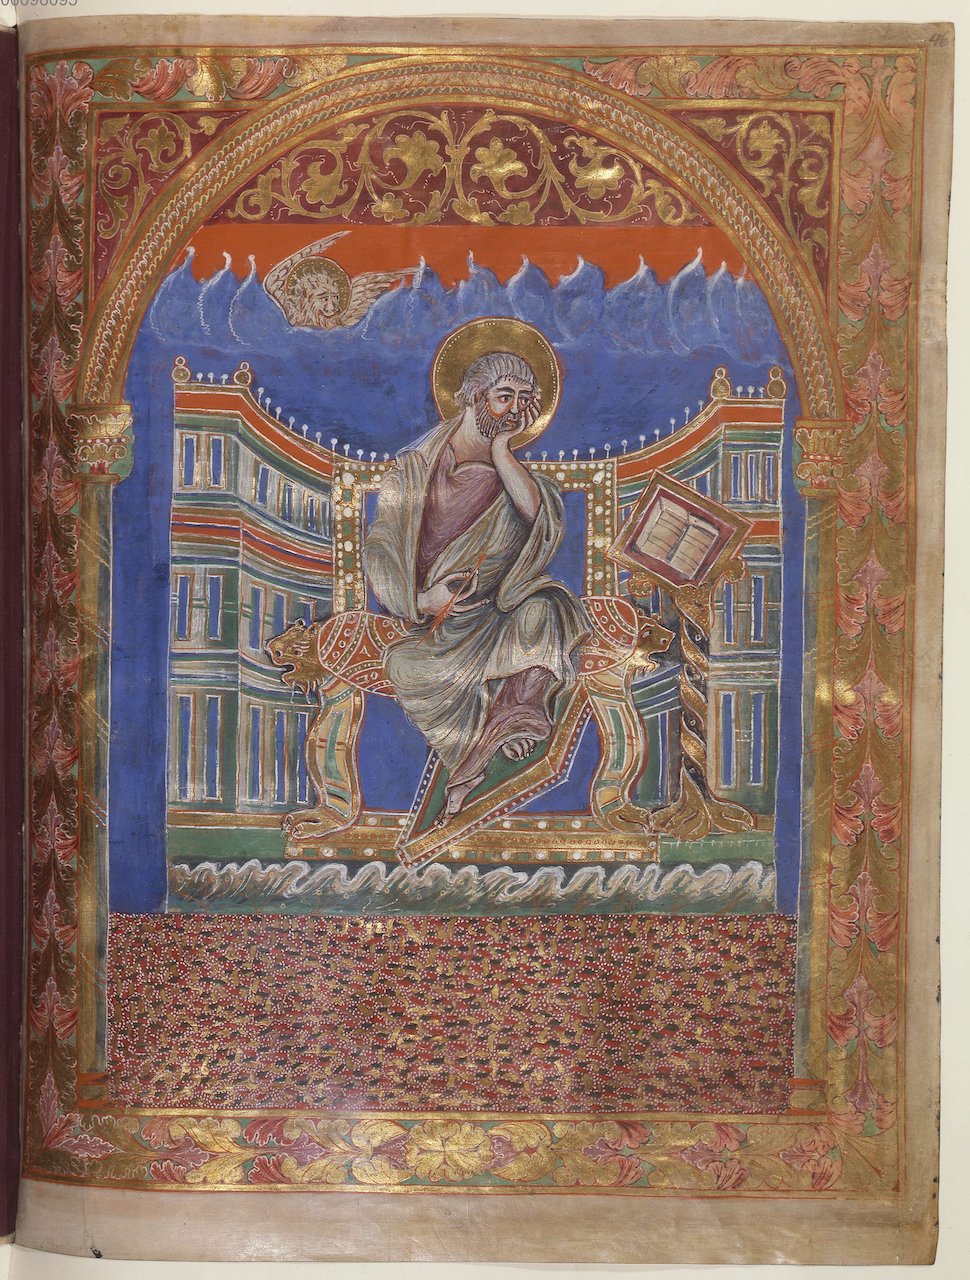 00096095
46